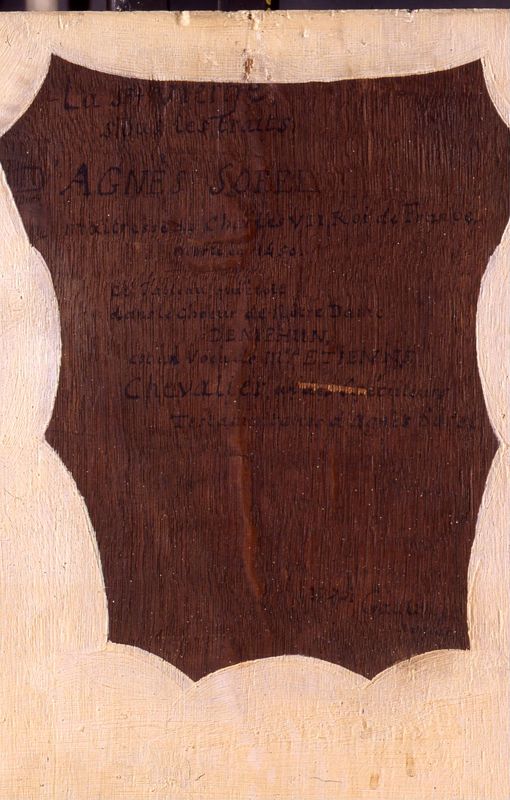 La Ste Vierge
sous les Traits
D'AGNÈS SOREL
maitresse de Charles VII, Roi de France,
morte en 1450.
ce Tableau qui etoit
dans le Chœur de Notre Dame
DE MELUN,
est un Vœu de Mre ETIENNE
Chevalier,
Testamentaires d'Agnès Sorel